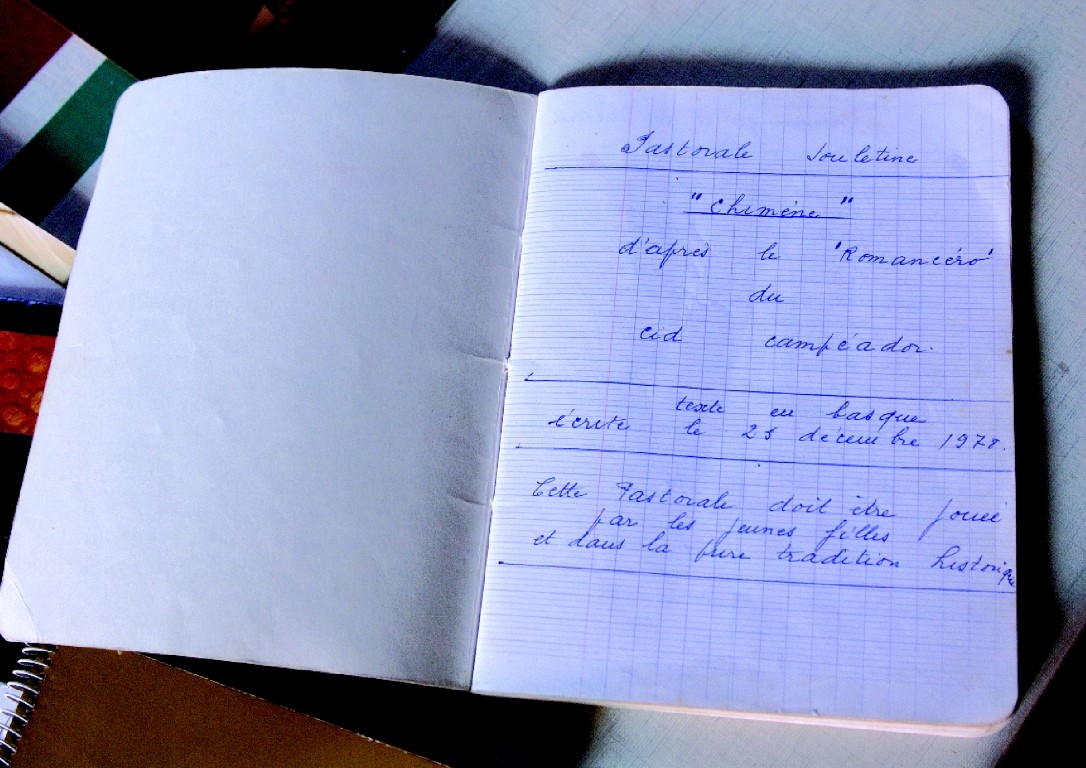 Pastorale Souletine
"Chimène"
d'après le 'Romancéro'
du
cid campéador.
texte en basque
écrite le 25 décembre 1978.
Cette Pastorale doit être jouée
par les jeunes filles
et dans la pure tradition historique